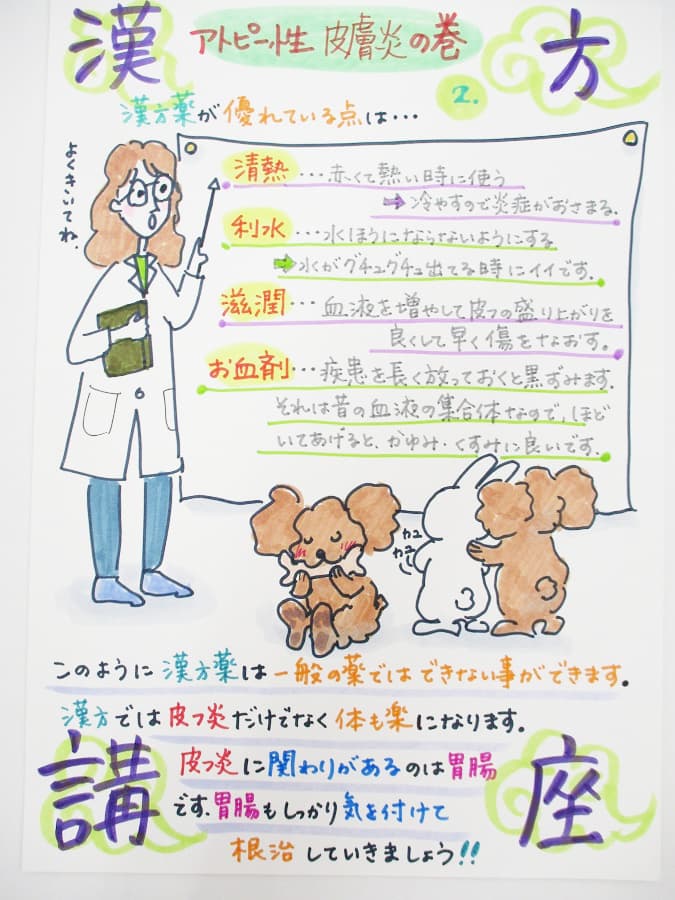 漢方
アトピー性 皮膚炎の巻
2.
漢方薬が優れている点は・・・
よくきいてね。
清熱・・・赤くて熱い時に使う
➡冷やすので炎症がおさまる。
利水・・・水ほうにならないようにする
➡水がグチュグチュ出てる時にイイです。
滋潤・・・血液を増やして皮フの盛り上がりを
良くして早く傷をなおす。
お血剤・・・疾患を長く放っておくと黒ずみます。
それは昔の血液の集合体なので、ほど
いてあげると、かゆみ・くすみに良いです。
カユ
カユ
このように漢方薬は一般の薬ではできない事ができます。
漢方では皮フ炎だけでなく体も楽になります。
皮フ炎に関わりがあるのは胃腸
です。胃腸もしっかり気を付けて
根治していきましょう!!
講座